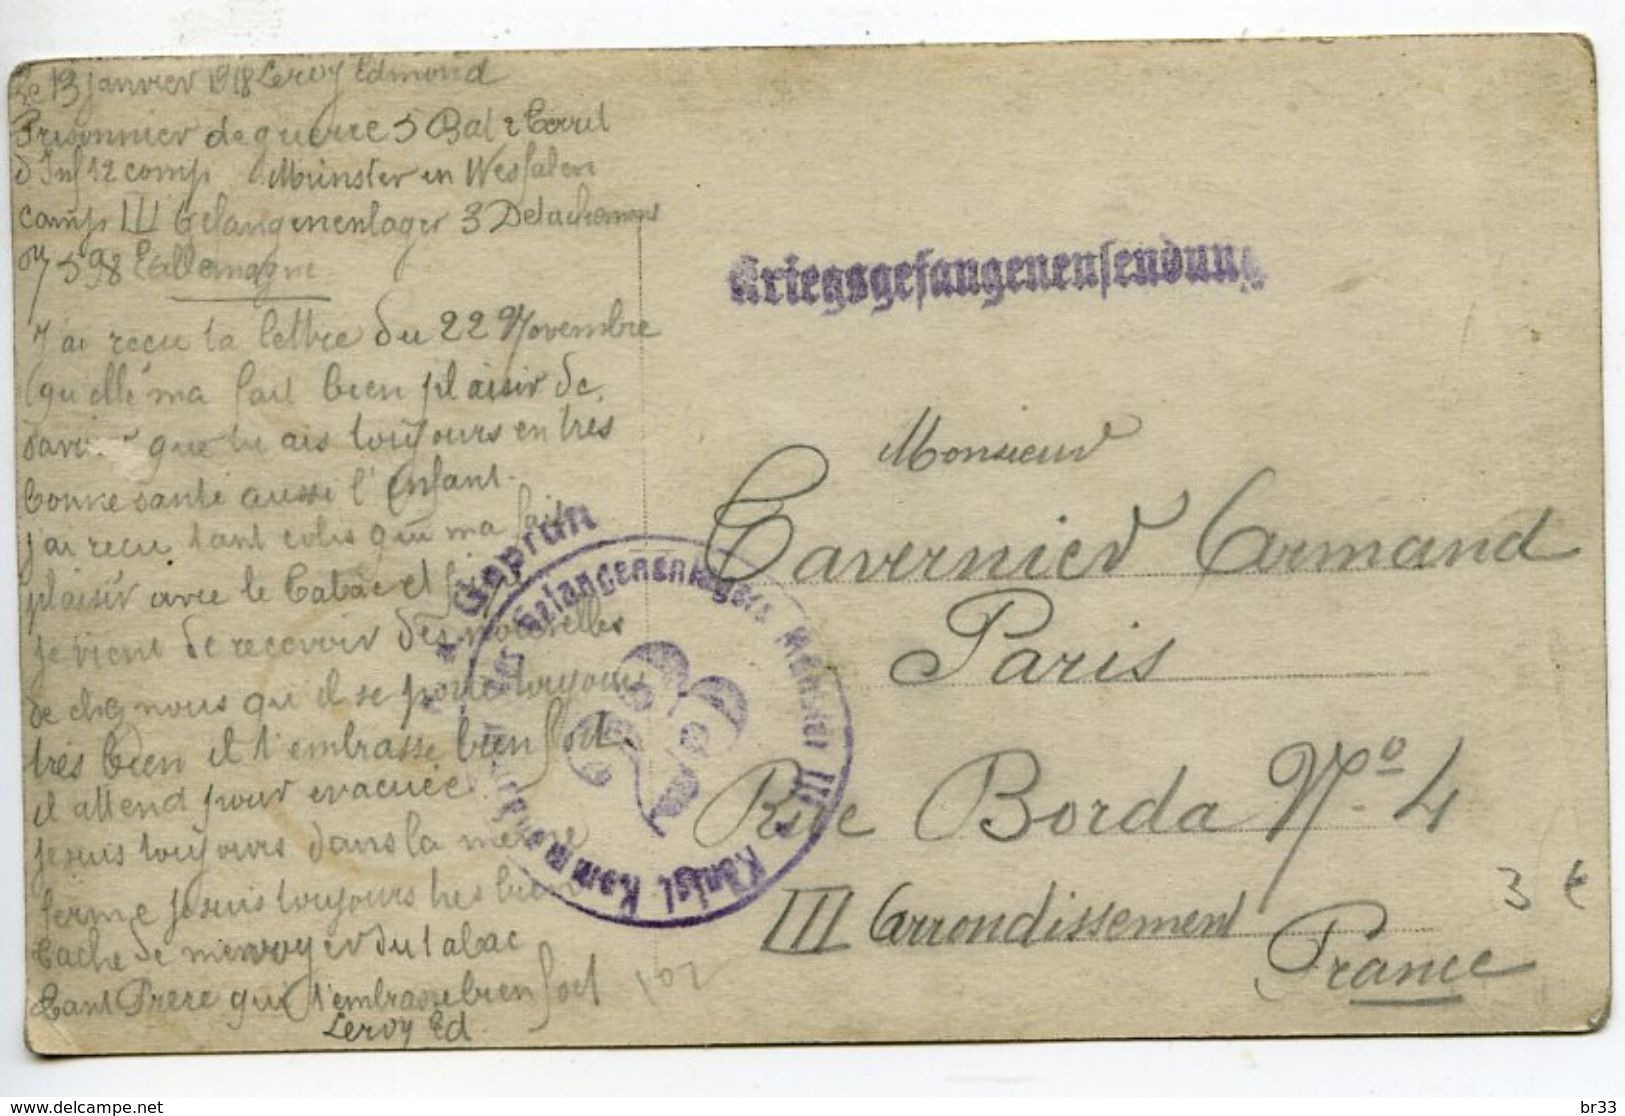 Le 13 janvier 1918 Leroy Edmond
Prisonnier de guerre 5 Bat 2 Territ
d'Inf 12 comp Münster en Wesfalen
camp III Gefangenenlager 3 Detachemans
No 598 L'allemagne
J'ai recu ta lettre du 22 Novembre
qu'elle ma fait bien plaisir de
savoir que tu ais toujours en tres
bonne santé aussi l'enfant.
j'ai recu tant colis qui ma fait
plaisir avec le tabac et
je vient de recevoir des nouvelles
de cheg nous qu il se porte toujours
très bien il t'embrasse bien fort
il attend pour evacuée
je suis toujours dans la meme
ferme je suis toujours tres bien
tache de m'envoyer du tabac
tant Frere qui t'embrasse bien fort
Leroy Ed
102
Kriegsgefangenensendung
Geprüft
Königl Kommandantur des Gefangenenlagers Münster III
Monsieur
Tavernier Armand
Paris
Rue Borda No 4
III Arrondissement
France
3 €
www.delcampe.net
br33